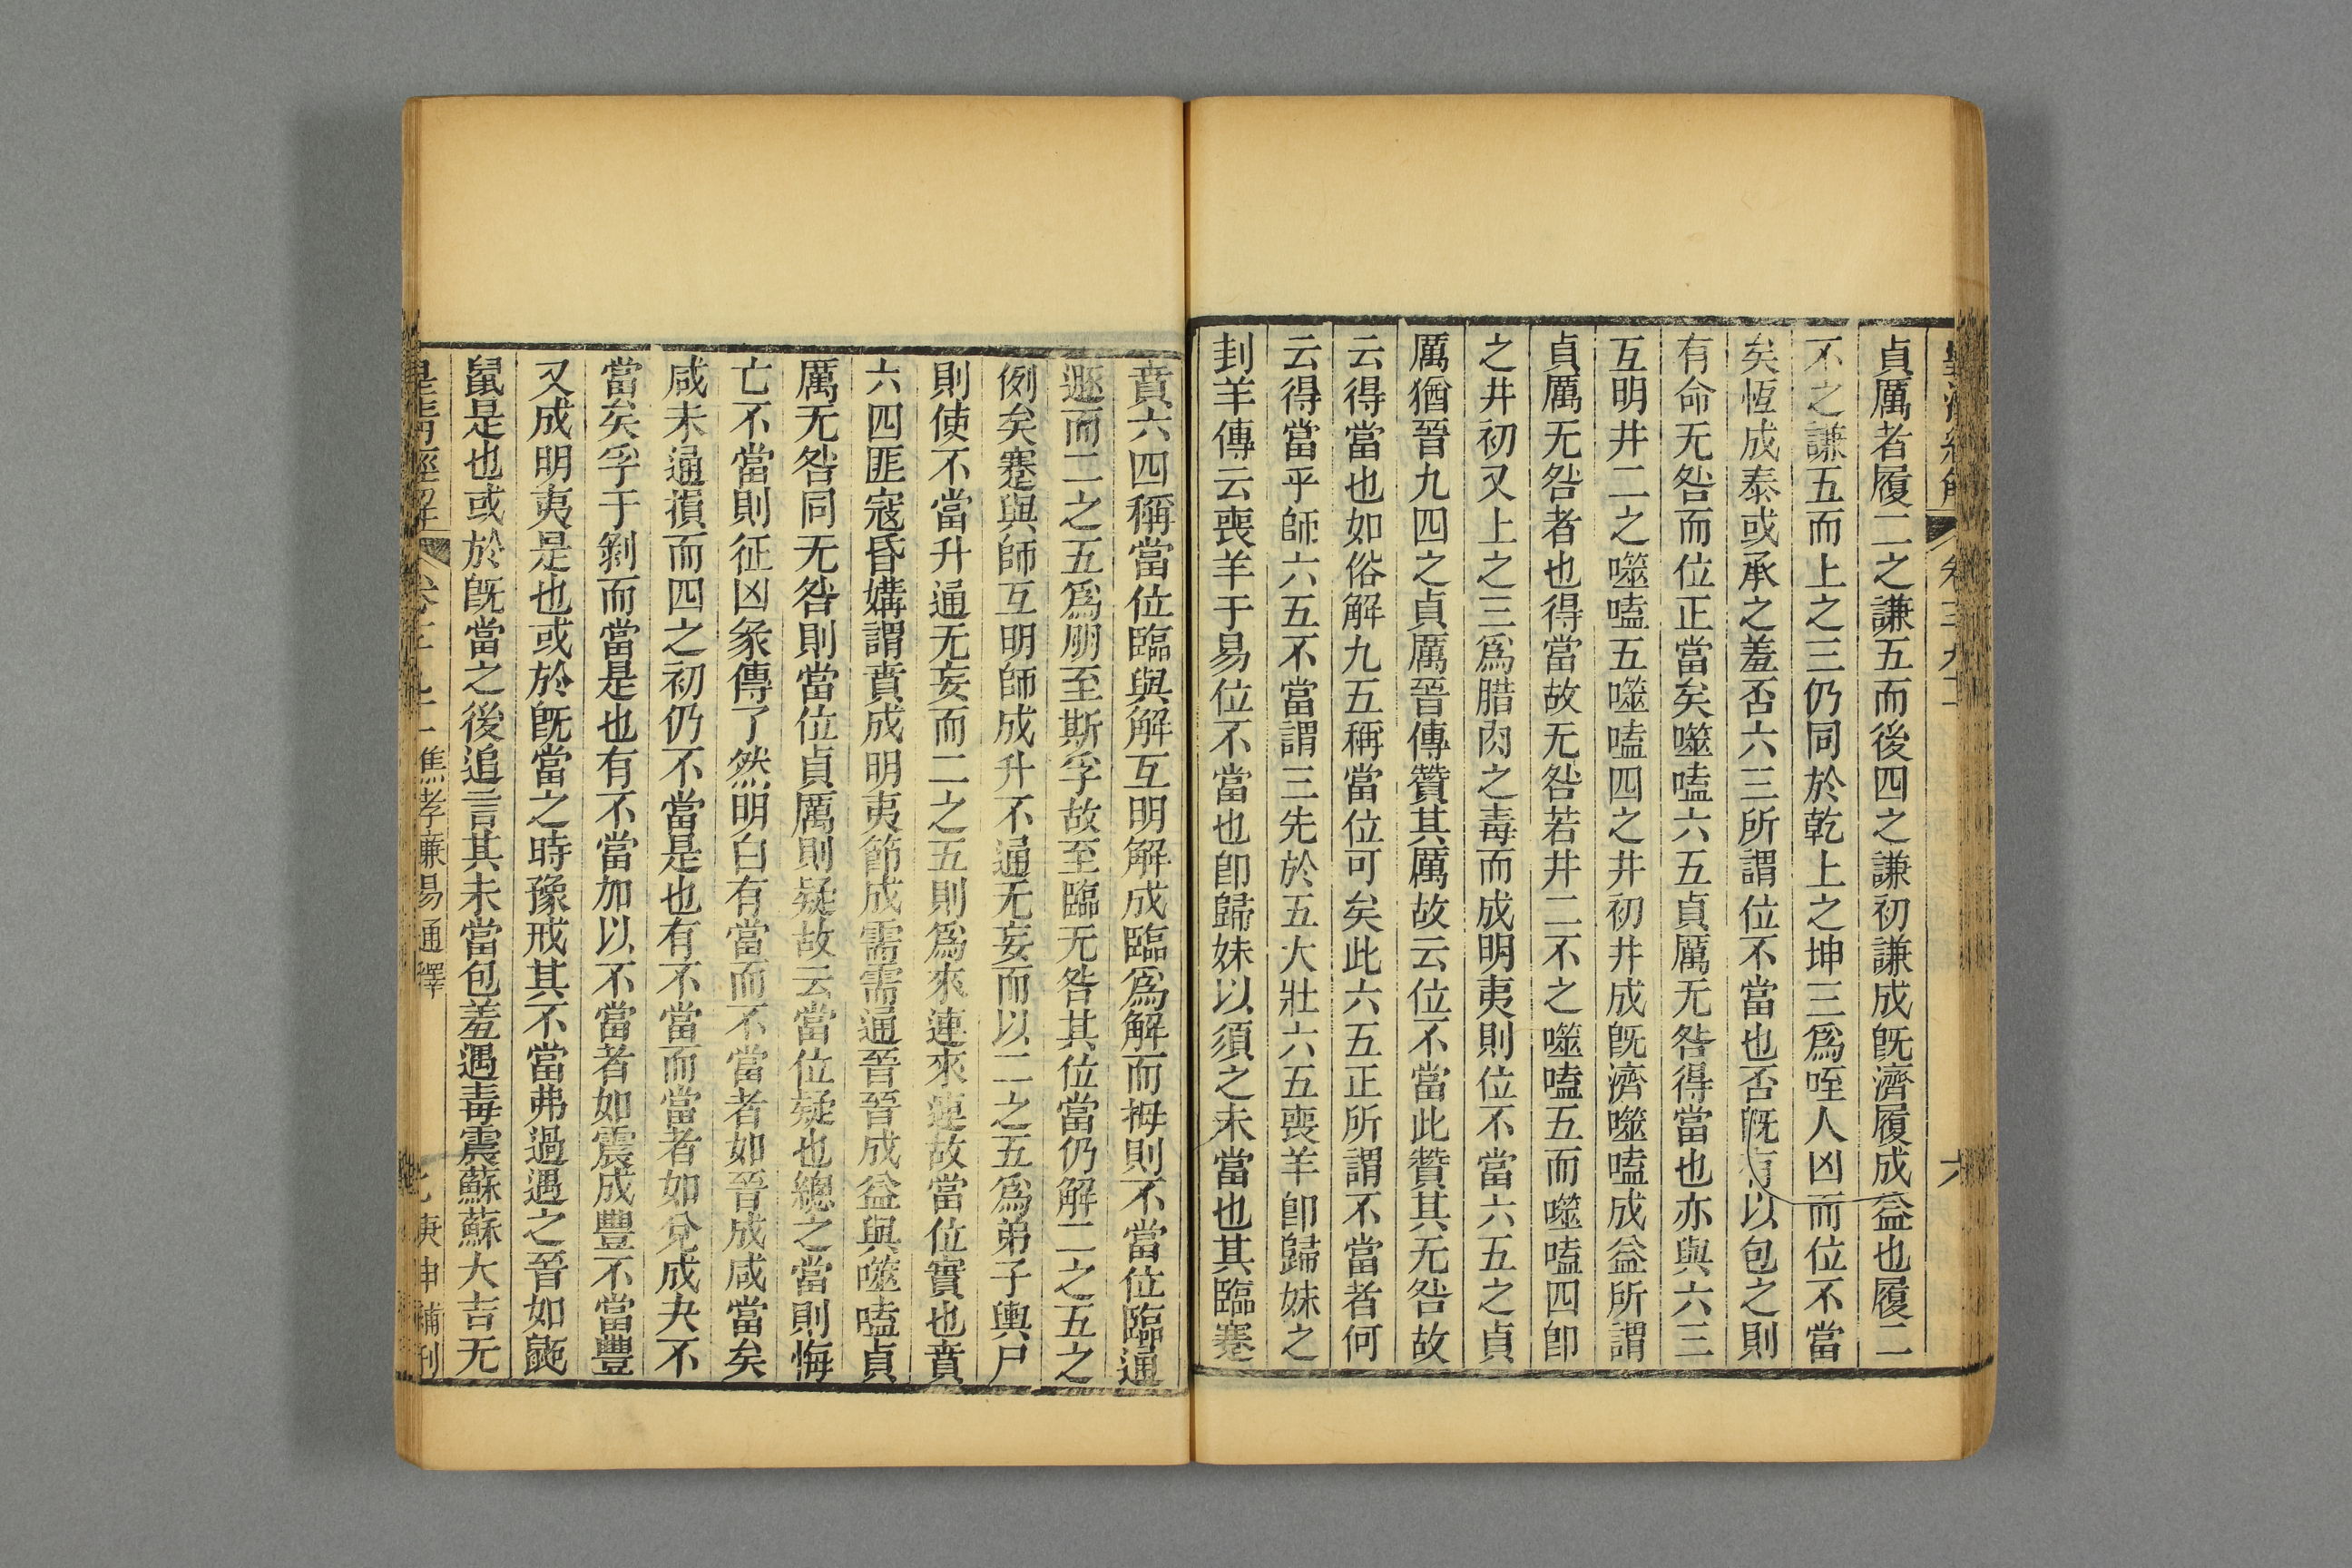 貞厲者履二之謙五而後四之謙初謙成旣濟履成益也履二
不之謙五而上之三仍同於乾上之坤三爲咥人凶而位不當
矣恆成泰或承之羞否六三所謂位不當也否旣有以包之則
有命无咎而位正當矣噬嗑六五貞厲无咎得當也亦與六三
互明井二之噬嗑五噬嗑四之井初井成旣濟噬嗑成益所謂
貞厲无咎者也得當故无咎若井二不之噬嗑五而噬嗑四卽
之井初又上之三爲腊肉之毒而成明夷則位不當六五之貞
厲猶晉九四之貞厲晉傳贊其厲故云位不當此贊其无咎故
云得當也如俗解九五稱當位可矣此六五正所謂不當者何
云得當乎師六五不當謂三先於五大壯六五喪羊卽歸妹之
刲羊傳云喪羊于易位不當也卽歸妹以須之未當也其臨蹇
賁六四稱當位臨與解互明解成臨爲解而拇則不當位臨通
遯而二之五爲朋至斯孚故至臨无咎其位當仍解二之五之
例矣蹇與師互明師成升不通无妄而以二之五爲弟子輿尸
則使不當升通无妄而二之五則爲來連來連故當位實也賁
六四匪寇昏媾謂賁成明夷節成需需通晉晉成益與噬嗑貞
厲无咎同无咎則當位貞厲則疑故云當位疑也總之當則悔
亡不當則征凶彖傳了然明白有當而不當者如晉成咸當矣
咸未通損而四之初仍不當是也有不當而當者如兌成夬不
當矣孚于剝而當是也有不當加以不當者如震成豐不當豐
又成明夷是也或於旣當之時豫戒其不當弗過遇之晉如鼫
鼠是也或於旣當之後追言其未當包羞遇毒震蘇蘇大吉无
焦孝廉易通釋
庚申補刊